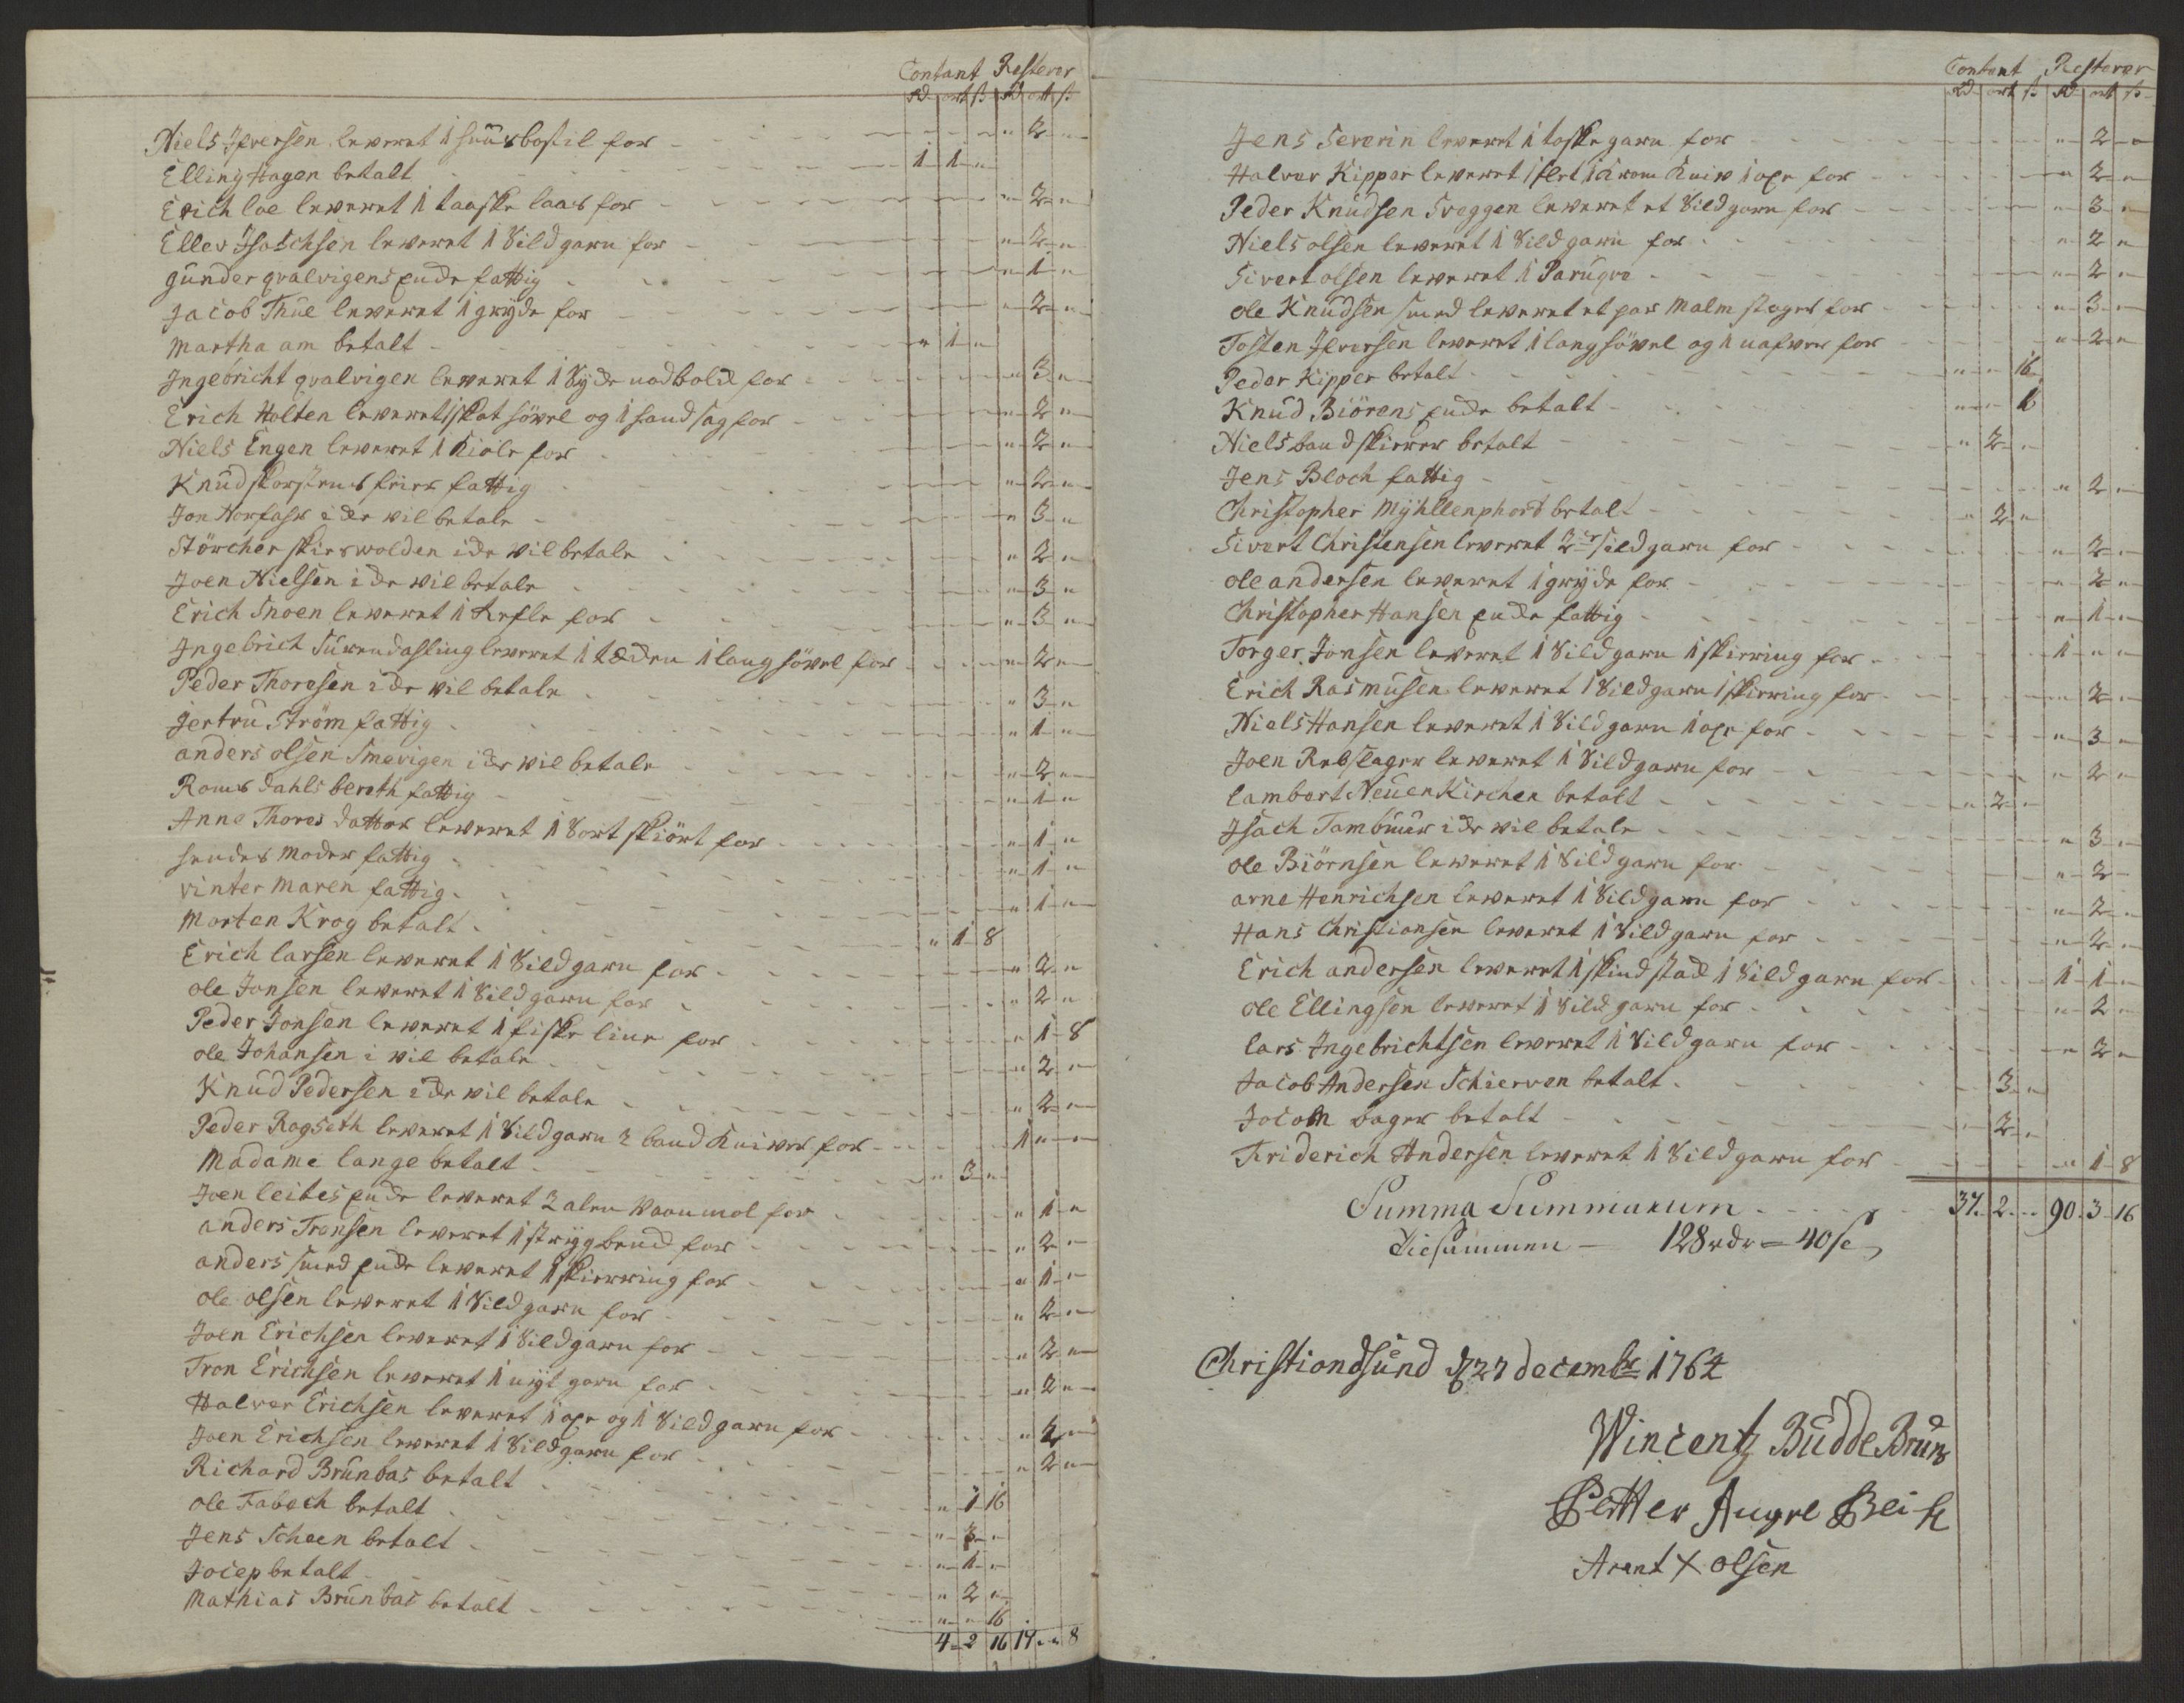 Contant Resterer
rd ort s rd ort s
Niels Ifversen leveret 1 huusbostil for " 2 "
Elling Hagen betalt 1 1 "
Erich loe leveret 1 taaske laas for " 2 "
Eller Isachsen leveret 1 Sildgarn for " 2 "
gunder qvalvigens Enke fattig " 1 "
Jacob Thue leveret 1 gryde for " 2 "
Martha am betalt " 1 "
Ingebricht qvalvigen leveret 1 for " 3 "
Erich Holten leveret 1 skot hövel og 1 haandsag for " 2 "
Niels Engen leveret 1 Kiole for " 2 "
Knud skorstens feier fattig " 2 "
Jon Norfahr icke vil betale " 3 "
Störcher skierwolden icke vil betale " 2 "
Joen Nielsen icke vil betale " 3 "
Erich Snoen leveret 1 Refle for " 3 "
Ingebrich leveret 1 1 lang hövel for " 2 "
Peder Thoresen icke vil betale " 3 "
Jertru Ström fattig " 1 "
anders olsen Smevigen icke vil betale " 2 "
Roms dahls bereth fattig " 1 "
Anne Thores datter leveret 1 Sort skiört for " 1 "
moder fattig " 1 "
vinter maren fattig " 1 "
Morten Krog betalt " 1 8
Erich larsen leveret 1 Sildgarn for " 2 "
ole Jonsen leveret 1 Sildgarn for " 2 "
Peder Jonsen leveret 1 fiske line for " 1 8
ole Johansen i vil betale " 2 "
Knud Pedersen icke vil betale " 2 "
Peder Rogseth leveret 1 Sildgarn 2 baand Kniver for 1 " "
Madame lange betalt " 3 "
Joen leites Enke leveret 2 alen Vaanmol for " 1 "
anders Tronsen leveret 1 for " 2 "
anders smed Enke leveret 1 skierring for " 1 "
ole olsen leveret 1 Sildgarn for " 2 "
Joen Erichsen leveret 1 Sildgarn for " 2 "
Tron Erichsen leveret 1 nyt garn for " 2 "
Halver Erichsen leveret 1 axe og 1 Sildgarn for " 2 "
Joen Erichsen leveret 1 Sildgarn for " 2 "
Richard Brunbas betalt " 1 16
ole Fabech betalt " 3 "
Jens Scheen betalt " 1 "
Jocep betalt " 2 "
Mathias Brunbas betalt " " 16
4 2 16 14 " 8
Contant Resterer
rd ort s rd ort s
Jens Severin leveret 1 toske garn for " 2 "
Halver Kipper leveret 1 flet 1 Krom Kniv 1 axe for " 2 "
Peder Knudsen Sveggen leveret et Sildgarn for " 3 "
Niels olsen leveret 1 Sildgarn for " 2 "
Sivert olsen leveret 1 Paruqve " 2 "
ole Knudsen smed leveret et par Malm stager for " 3 "
Tosten Ifversen leveret 1 lang hövel og 1 nafver for " 2 "
Peder Kipper betalt " " 16
Knud Biörens Enke betalt " "
Niels baandskierer betalt " 2 "
Jens Bloch fattig " 2 "
Christopher Myhllenphort betalt " 2 "
Sivert Christensen leveret 2de sildgarn for " 2 "
ole andersen leveret 1 gryde for " 2 "
Christopher Hansen Enke fattig " 1 "
Torger Jonsen leveret 1 Sildgarn 1 skierring for 1 " "
Erich Rasmusen leveret 1 Sildgarn 1 skierring for " 2 "
Niels Hansen leveret 1 Sildgarn 1 axe for " 3 "
Joen Rebslager leveret 1 Sildgarn for " 2 "
lambert Neuen Kirchen betalt " 2 "
Isach Tambuur icke vil betale " 3 "
ole Biörnsen leveret 1 Sildgarn for " 2 "
arne Henrichsen leveret 1 Sildgarn for " 2 "
Hans Christiansen leveret 1 Sildgarn for " 2 "
Erich andersen leveret 1 1 Sildgarn for 1 1 "
ole Ellingsen leveret 1 Sildgarn for " 2 "
lars Ingebrichtsen leveret 1 Sildgarn for " 2 "
Jacob Andersen Schierven betalt 3 "
Jocom bager betalt 2 "
Friderich Andersen leveret 1 Sildgarn for " 1 8
Summa Summarum 37 2 " 90 3 16
128 rdr = 40 s
Christiandsund d 27 decembr 1764
Wincentz Budde Brun
Petter Augre
Arent X olsen